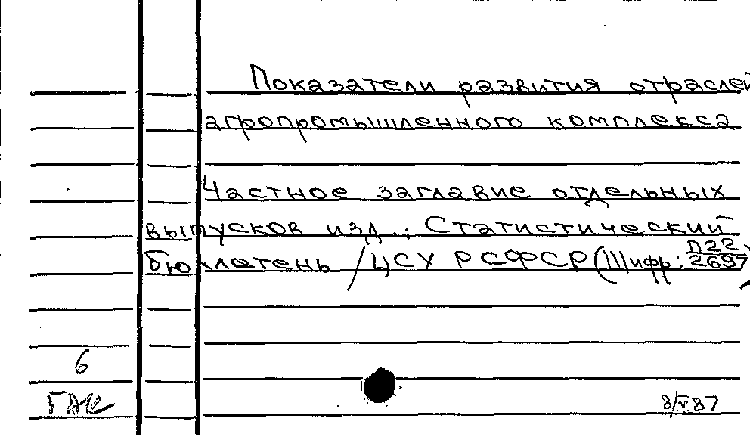 Показатели развития отраслей
агропромышленного комплекса
Частное заглавие отдельных
выпусков изд.: Статистический
бюллетень / ЦСУ РСФСР (Шифр: П22/2697
6
ГАК
8/V 87